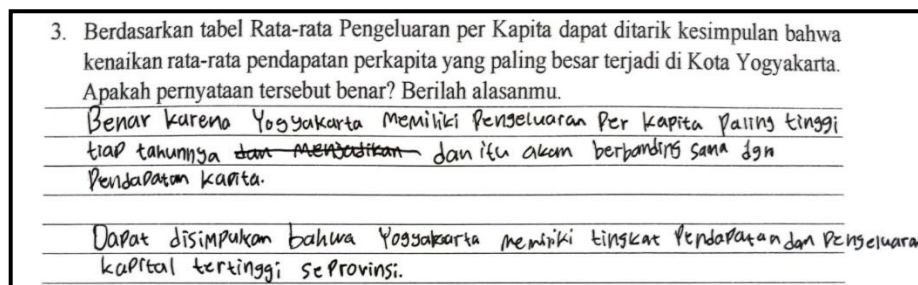 3. Berdasarkan tabel Rata-rata Pengeluaran per Kapita dapat ditarik kesimpulan bahwa
kenaikan rata-rata pendapatan perkapita yang paling besar terjadi di Kota Yogyakarta.
Apakah pernyataan tersebut benar? Berilah alasanmu.
Benar karena Yogyakarta memiliki Pengeluaran Per Kapita Paling tinggi
tiap tahunnya dan menjadikan dan itu akan berbanding sama dgn
Pendapatan Kapita.
Dapat disimpulkan bahwa Yogyakarta memiriki tingkat Pendapatan dan Pengeluaran
kapital tertinggi seProvinsi.